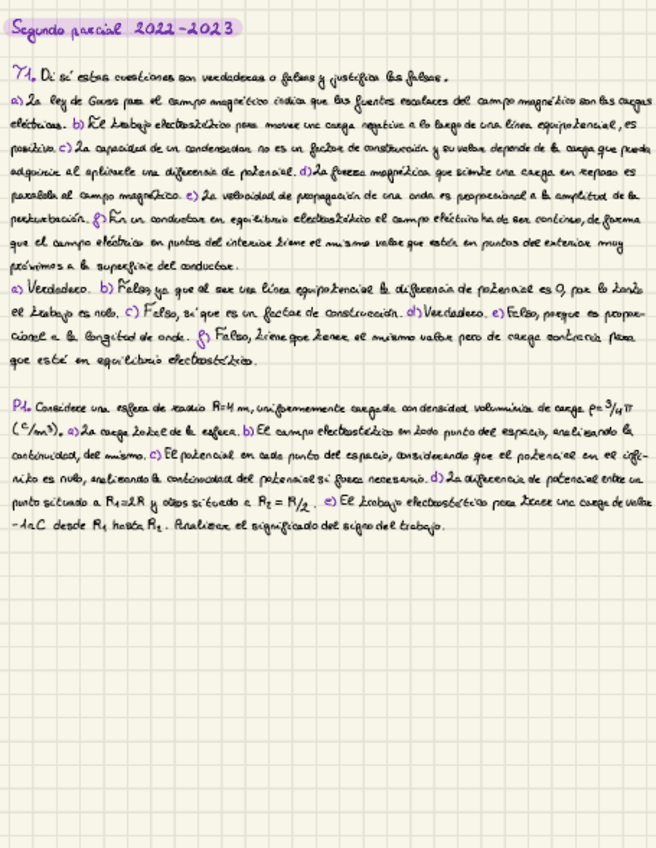 Segundo parcial 2022-2023
T1. Di si estas cuestiones son verdaderas o falsas y justifica las falsas.
a) La ley de Gauss para el campo magnético indica que las fuentes escalares del campo magnético son las cargas
eléctricas. b) El trabajo electrostático para mover una carga negativa a lo largo de una línea equipotencial, es
positivo. c) La capacidad de un condensador no es un factor de construcción y su valor depende de la carga que pueda
adquirir al aplicarle una diferencia de potencial. d) La fuerza magnética que siente una carga en reposo es
paralela al campo magnético. e) La velocidad de propagación de una onda es proporcional a la amplitud de la
perturbación. f) En un conductor en equilibrio electrostático el campo eléctrico ha de ser continuo, de forma
que el campo eléctrico en puntos del interior tiene el mismo valor que está en puntos del exterior muy
próximos a la superficie del conductor.
a) Verdadero. b) Falso, ya que al ser una línea equipotencial la diferencia de potencial es 0, por lo tanto
el trabajo es nulo. c) Falso, sí que es un factor de construcción. d) Verdadero. e) Falso, porque es propor-
cional a la longitud de onda. f) Falso, tiene que tener el mismo valor pero de carga contraria para
que esté en equilibrio electrostático.
P1. Considere una esfera de radio R=4 m, uniformemente cargada con densidad volumínica de carga ρ=3/4π
(C/m³). a) La carga total de la esfera. b) El campo electrostático en todo punto del espacio, analizando la
continuidad, del mismo. c) El potencial en cada punto del espacio, considerando que el potencial en el infi-
nito es nulo, analizando la continuidad del potencial si fuera necesario. d) La diferencia de potencial entre un
punto situado a R₁=2R y otros situado a R₂ = R/2. e) El trabajo electrostático para traer una carga de valor
-1nC desde R₁ hasta R₂. Analizar el significado del signo del trabajo.